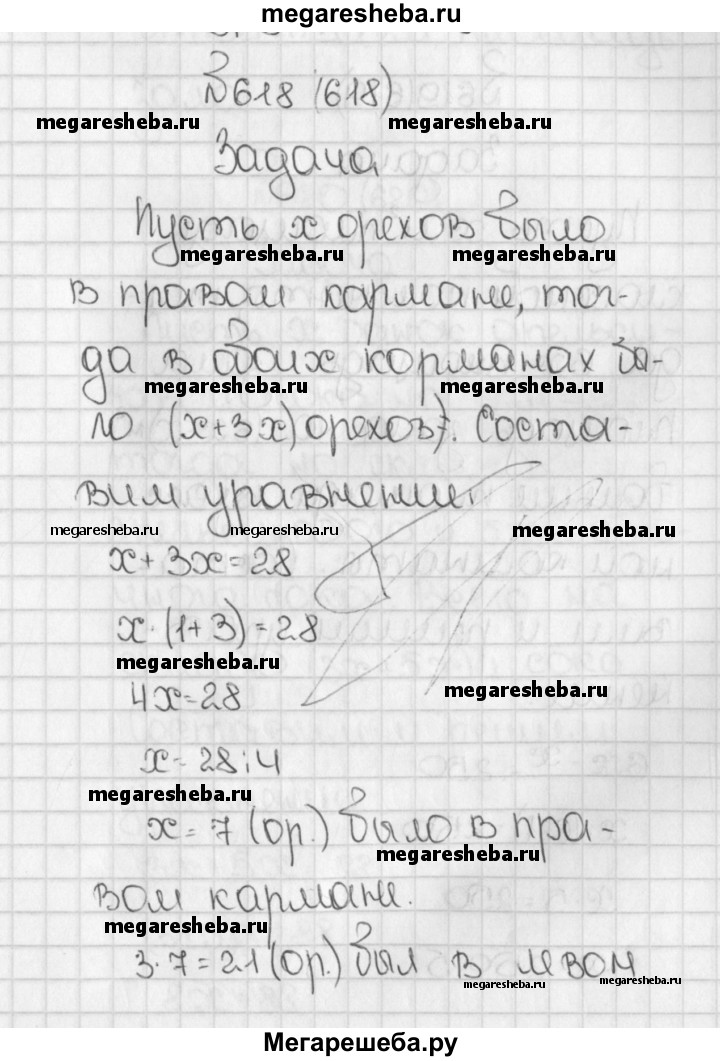 megaresheba.ru
№618 (618)
megaresheba.ru megaresheba.ru
Задача
Пусть x орехов было
megaresheba.ru megaresheba.ru
в правом кармане, тог-
да в обоих корманах бы-
megaresheba.ru megaresheba.ru
ло (x+3x) орехов. Соста-
вим уравнении.
megaresheba.ru megaresheba.ru megaresheba.ru
x+3x=28
x·(1+3)=28
megaresheba.ru
megaresheba.ru
4x=28
x=28:4
megaresheba.ru
x=7 (ор.) было в пра-
megaresheba.ru
вом кармане.
megaresheba.ru
3·7=21 (ор.) был в левом
megaresheba.ru megaresheba.ru
Мегарешеба.ру